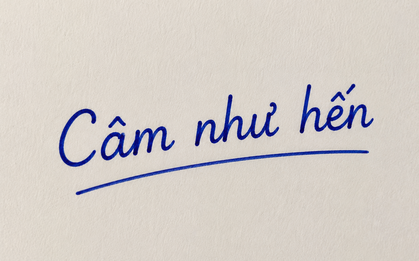 Câm như hến